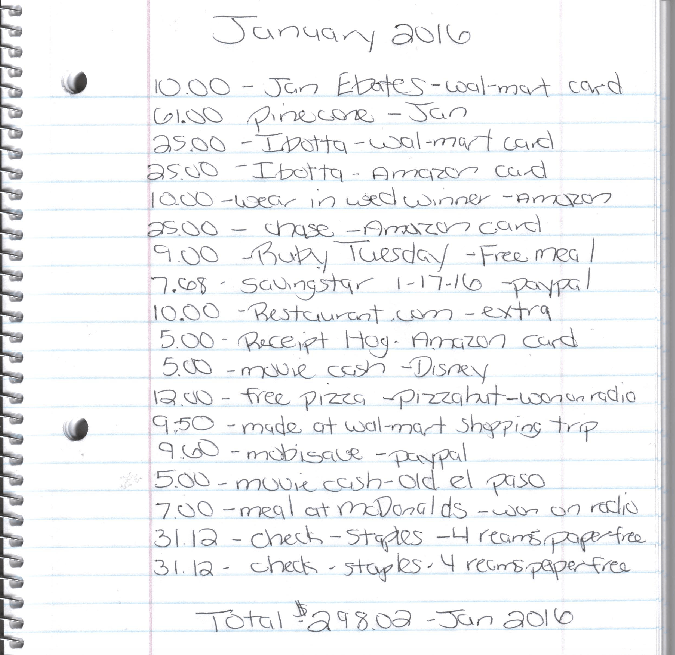 January 2016
10.00 - Jan Ebates - wal-mart card
61.00 pinecone - Jan
25.00 - Ibotta - wal-mart card
25.00 - Ibotta - Amazon card
10.00 - wear in wed winner - Amazon
25.00 - chase - Amazon card
9.00 - Ruby Tuesday - Free meal
7.68 - Savingstar 1-17-16 - paypal
10.00 - Restaurant.com - extra
5.00 - Receipt Hog - Amazon card
5.00 - movie cash - Disney
12.00 - free pizza - pizzahut - won on radio
9.50 - made at wal-mart shopping trip
9.60 - mobisave - paypal
5.00 - movie cash - old el paso
7.00 - meal at mcDonalds - won on radio
31.12 - check - staples - 4 reams paper free
31.12 - check - staples - 4 reams paper free
Total $298.02 - Jan 2016